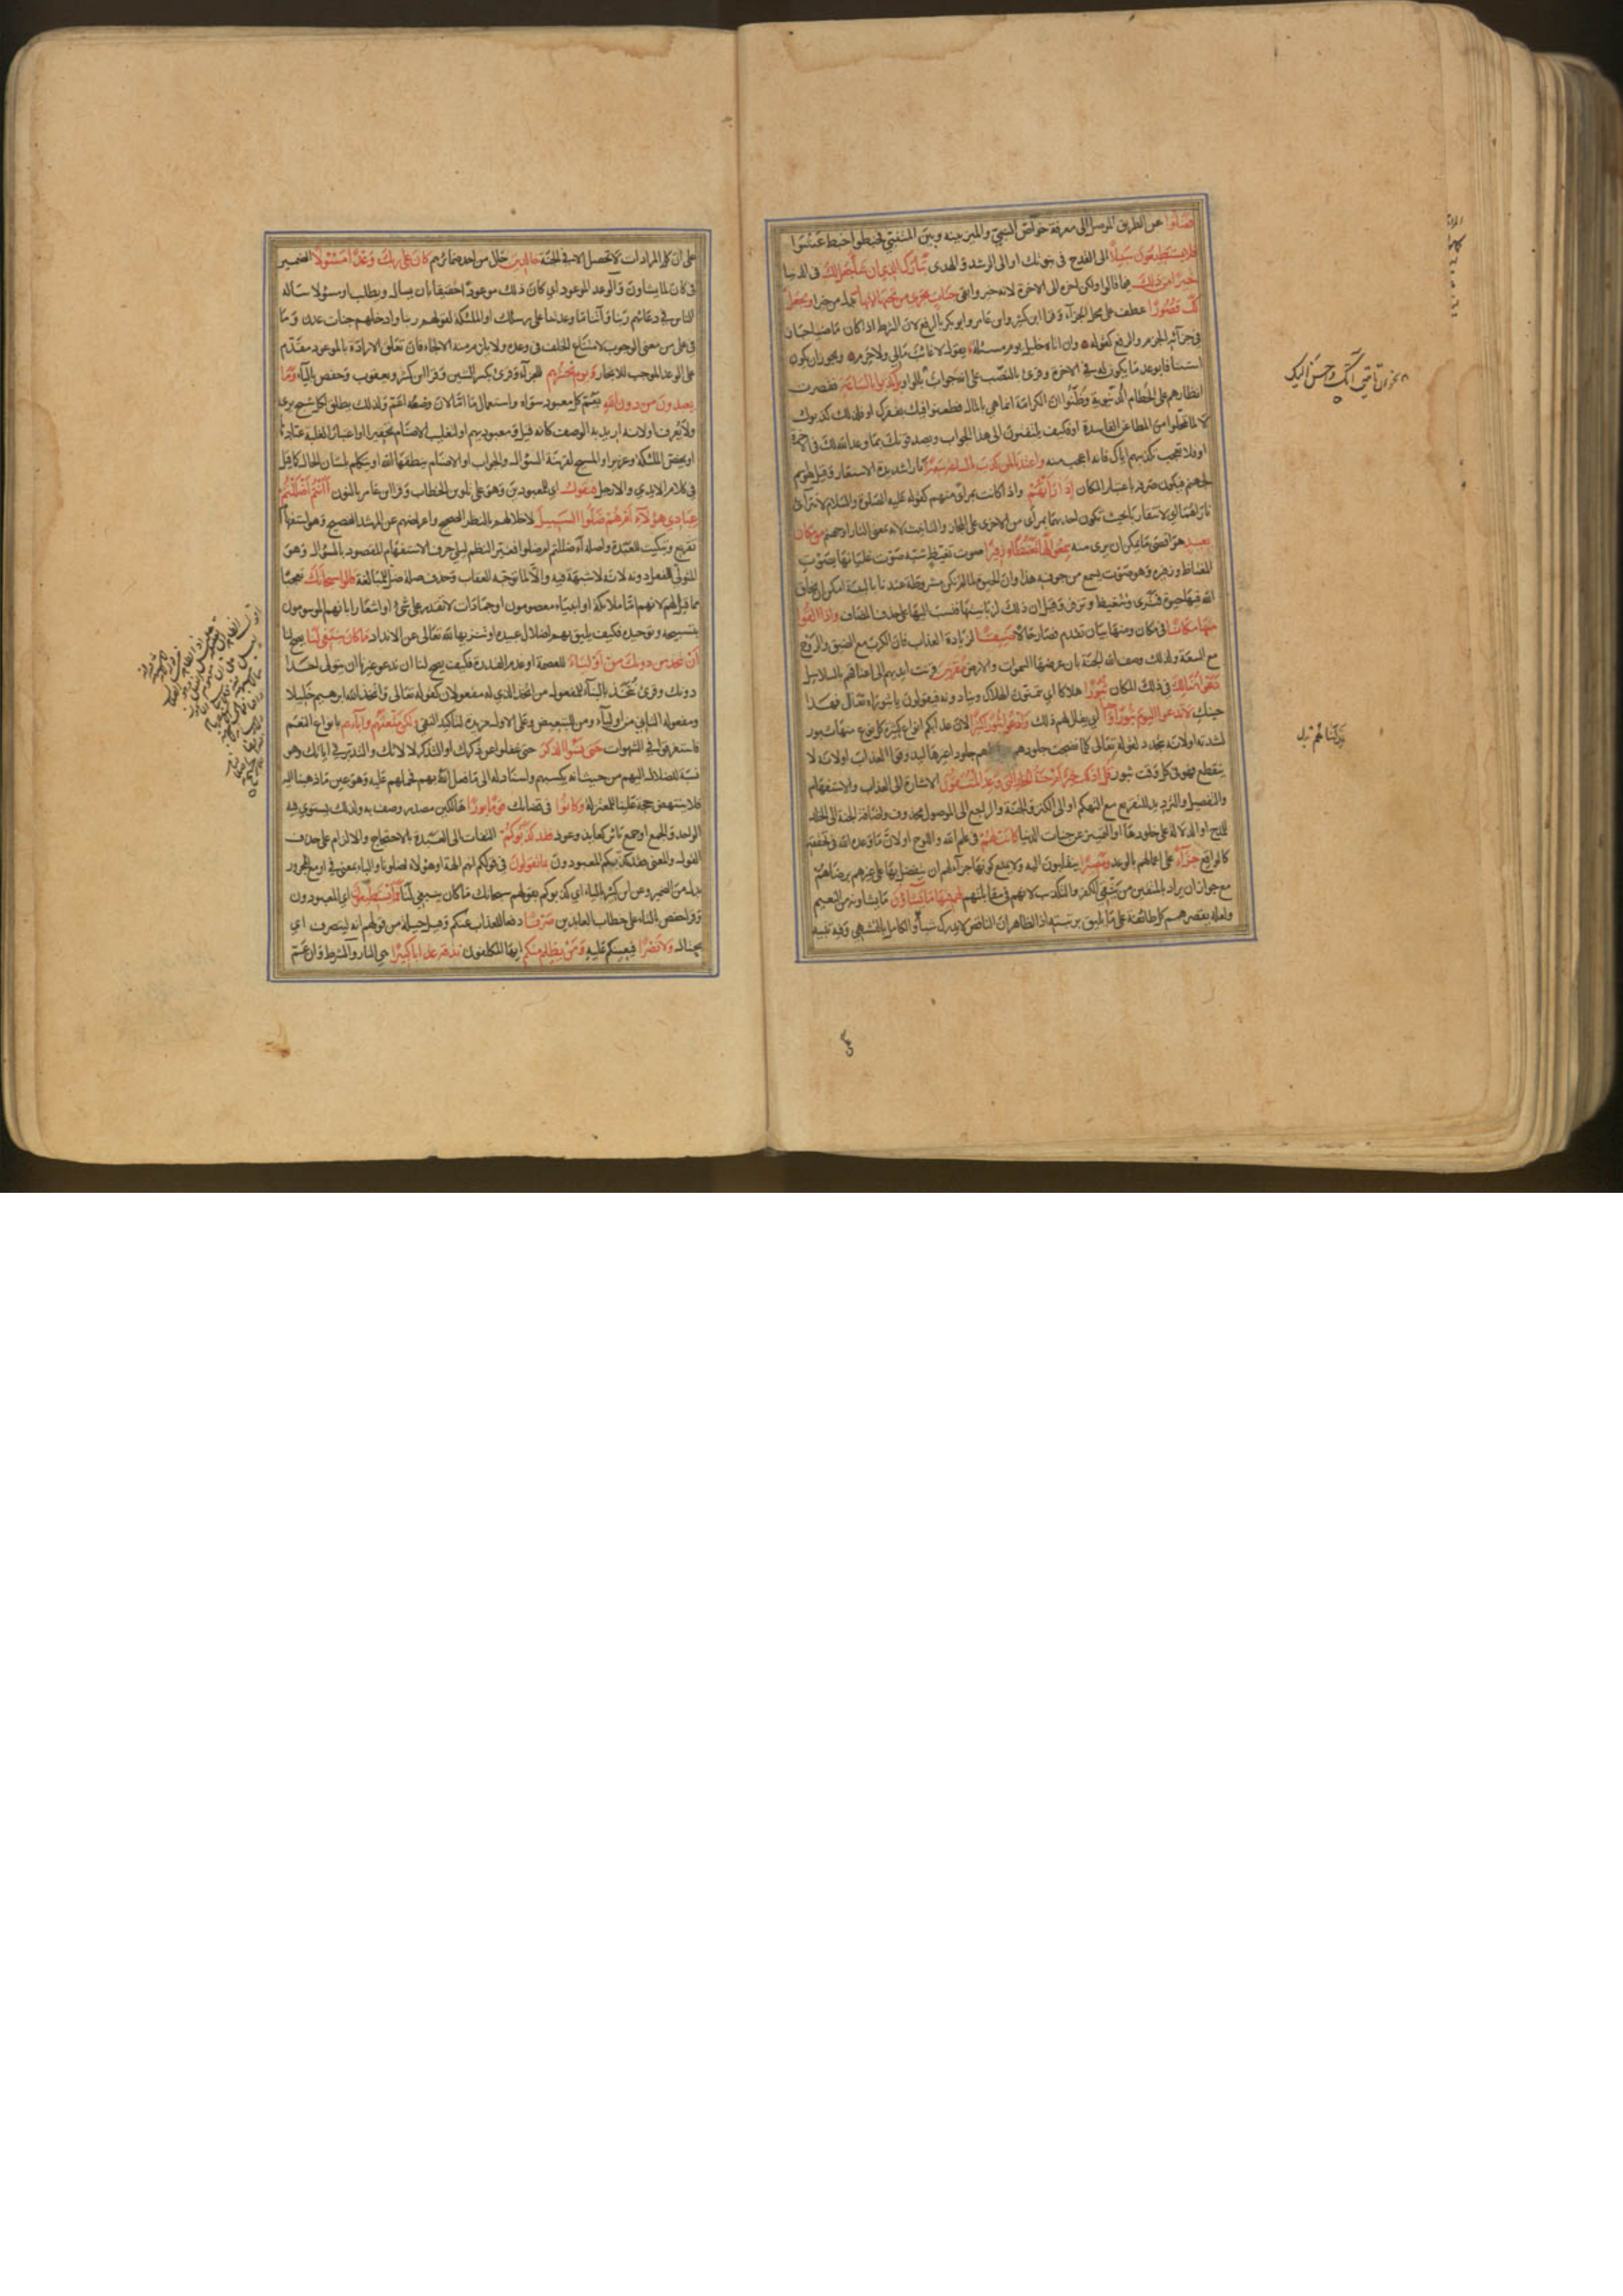 فضلوا عن الطريق الموصل الى معرفة خواص النبي والمميز بينه وبين المتنبي فخبطوا خبط عشوا
فلا يستطيعون سبيلا الى القدح في نبوتك او الى الرشد والهدى تبارك الذي ان شاء جعل لك في الدنيا
خيرا من ذلك مما قالوا ولكن اخره الى الاخرة لانه خير وابقى جنات تجري من تحتها الانهار بدل من خيرا ويجعل
لك قصورا عطف على محل الجزاء وقرا ابن كثير وابن عامر وابو بكر بالرفع لان الشرط اذا كان ماضيا جاز
في جزائه الجزم والرفع كقوله وان اتاه خليل يوم مسئلة يقول لا غائب مالي ولا حرم ويجوز ان يكون
استينافا بوعد ما يكون له في الاخرة وقرئ بالنصب على انه جواب بالواو بل كذبوا بالساعة فقصرت
انظارهم على الحطام الدنيوية وظنوا ان الكرامة انما هي بالمال فطعنوا فيك بفقرك او فلذلك كذبوك
لا لما تمحلوا من المطاعن الفاسدة او فكيف يلتفتون الى هذا الجواب ويصدقونك بما وعد الله لك في الاخرة
او فلا تعجب تكذيبهم اياك فانه اعجب منه واعتدنا لمن كذب بالساعة سعيرا نارا شديدة الاستعار وقيل هو اسم
لجهنم فيكون صرفه باعتبار المكان اذا راتهم اذا كانت بمراى منهم كقوله عليه الصلوة والسلام لا تتراءى
ناراهما اي لا تتقاربا بحيث تكون احديهما بمراى من الاخرى على المجاز والتانيث لانه بمعنى النار او جهنم من مكان
بعيد هو اقصى ما يمكن ان يرى منه سمعوا لها تغيظا وزفيرا صوت تغيظ شبه صوت غليانها بصوت
المغتاظ وزفيره وهو صوت يسمع من جوفه هذا وان الحيوة لما لم تكن مشروطة عندنا بالبنية امكن ان يخلق
الله فيها حيوة فترى وتتغيظ وتزفر وقيل ان ذلك لزبانيتها فنسب اليها على حذف المضاف واذا القوا
منها مكانا في مكان ومنها بيان تقدم فصار حالا ضيقا لزيادة العذاب فان الكرب مع الضيق والروح
مع السعة ولذلك وصف الله الجنة بان عرضها السموات والارض مقرنين قرنت ايديهم الى اعناقهم بالسلاسل
دعوا هنالك في ذلك المكان ثبورا هلاكا اي يتمنون الهلاك وينادونه فيقولون يا ثبوراه تعال فهذا
حينك لا تدعوا اليوم ثبورا واحدا اي يقال لهم ذلك وادعوا ثبورا كثيرا لان عذابكم انواع كثيرة كل نوع منها ثبور
لشدته او لانه يتجدد لقوله تعالى كلما نضجت جلودهم بدلناهم جلودا غيرها ليذوقوا العذاب او لانه لا
ينقطع فهو في كل وقت ثبور قل اذلك خير ام جنة الخلد التي وعد المتقون الاشارة الى العذاب والاستفهام
والتفضيل والترديد للتقريع مع التهكم او الى الكنز والجنة والراجع الى الموصول محذوف واضافة الجنة الى الخلد
للمدح او الدلالة على خلودها او التمييز عن جنات الدنيا كانت لهم في علم الله او اللوح او لان ما وعده الله في تحققه
كالواقع جزاء على اعمالهم بالوعد ومصيرا ينقلبون اليه ولا يمنع كونها جزاء لهم ان يتفضل بها على غيرهم برضاهم
مع جواز ان يراد بالمتقين من يتقي الكفر والتكذيب لانهم في مقابلتهم لهم فيها ما يشاؤن ما يشاونه من النعيم
ولعله يقصر همم كل طائفة على ما يليق برتبته اذ الظاهر ان الناقص لا يدرك شيأ والكامل بالتشهي وفيه تنبيه
على ان كل المرادات لا تحصل الا في الجنة خالدين حال من احد ضمائرهم كان على ربك وعدا مسئولا الضمير
في كان لما يشاون والوعد الموعود اي كان ذلك موعودا حقيقا بان يسال ويطلب او مسئولا ساله
الناس في دعائهم ربنا وآتنا ما وعدتنا على رسلك او الملئكة لقولهم ربنا وادخلهم جنات عدن وما
في على من معنى الوجوب لامتناع الخلف في وعده ولا يلزم منه الالجاء فان تعلق الارادة بالموعود مقدم
على الوعد الموجب للانجاز ويوم نحشرهم للجزآء وقرئ بكسر الشين وقرا ابن كثير ويعقوب وحفص بالياء وما
يعبدون من دون الله يعم كل معبود سواه واستعمال ما اما لان وضعه اعم ولذلك يطلق لكل شبح يرى
ولا يعرف او لانه اريد به الوصف كانه قيل ومعبوديهم او لتغليب الاصنام تحقيرا او اعتبارا لغلبة عبادها
او يخص الملئكة وعزيرا والمسيح لقرينة السؤال والجواب او الاصنام ينطقها الله او يتكلم بلسان الحال كما قيل
في كلام الايدي والارجل فيقول اي للمعبودين وهو على تلوين الخطاب وقرا ابن عامر بالنون أأنتم اضللتم
عبادي هؤلاء ام هم ضلوا السبيل لاخلالهم بالنظر الصحيح واعراضهم عن المرشد النصيح وهو استفهام
تقريع وتبكيت للعبدة واصله أاضللتم ام ضلوا فغير النظم ليلي حرف الاستفهام المقصود بالسؤال وهو
المتولي للفعل دونه لانه لا شبهة فيه والا لما توجه العقاب وحذف صلة ضل للمبالغة قالوا سبحانك تعجبا
مما قيل لهم لانهم اما ملائكة او انبياء معصومون او جمادات لا تقدر على شئ او اشعارا بانهم الموسومون
بتسبيحه وتوحيده فكيف يليق بهم اضلال عبيده او تنزيها لله تعالى عن الانداد ما كان ينبغي لنا يصح لنا
ان نتخذ من دونك من اولياء للعصمة او عدم القدرة فكيف يصح لنا ان ندعو غيرنا ان يتولى احدا
دونك وقرئ نتخذ بالبناء للمفعول من اتخذ الذي له مفعولان كقوله تعالى واتخذ الله ابرهيم خليلا
ومفعوله الثاني من اولياء ومن للتبعيض وعلى الاول مزيدة لتاكيد النفي ولكن متعتهم وآباءهم بانواع النعم
فاستغرقوا في الشهوات حتى نسوا الذكر حتى غفلوا عن ذكرك او التذكر لالائك والتدبر في اياتك وهو
نسبة للضلال اليهم من حيث انه بكسبهم واسناد له الى ما فعل الله بهم فحملهم عليه وهو عين ما ذهبنا اليه
فلا ينتهض حجة علينا للمعتزلة وكانوا في قضائك قوما بورا هالكين مصدر وصف به ولذلك يستوي فيه
الواحد والجمع او جمع بائر كعائذ وعوذ فقد كذبوكم التفات الى العبدة بالاحتجاج والالزام على حذف
القول والمعنى فقد كذبكم المعبودون بما تقولون في قولكم انهم الهة او هؤلاء اضلونا والباء بمعنى في او مع المجرور
بدل من الضمير وعن ابن كثير بالياء اي كذبوكم بقولهم سبحانك ما كان ينبغي لنا فما يستطيعون اي المعبودون
وقرا حفص بالتاء على خطاب العابدين صرفا دفعا للعذاب عنكم وقيل حيلة من قولهم انه ليتصرف اي
يحتال ولا نصرا فيعينكم عليه ومن يظلم منكم ايها المكلفون نذقه عذابا كبيرا هي النار والشرط وان عم